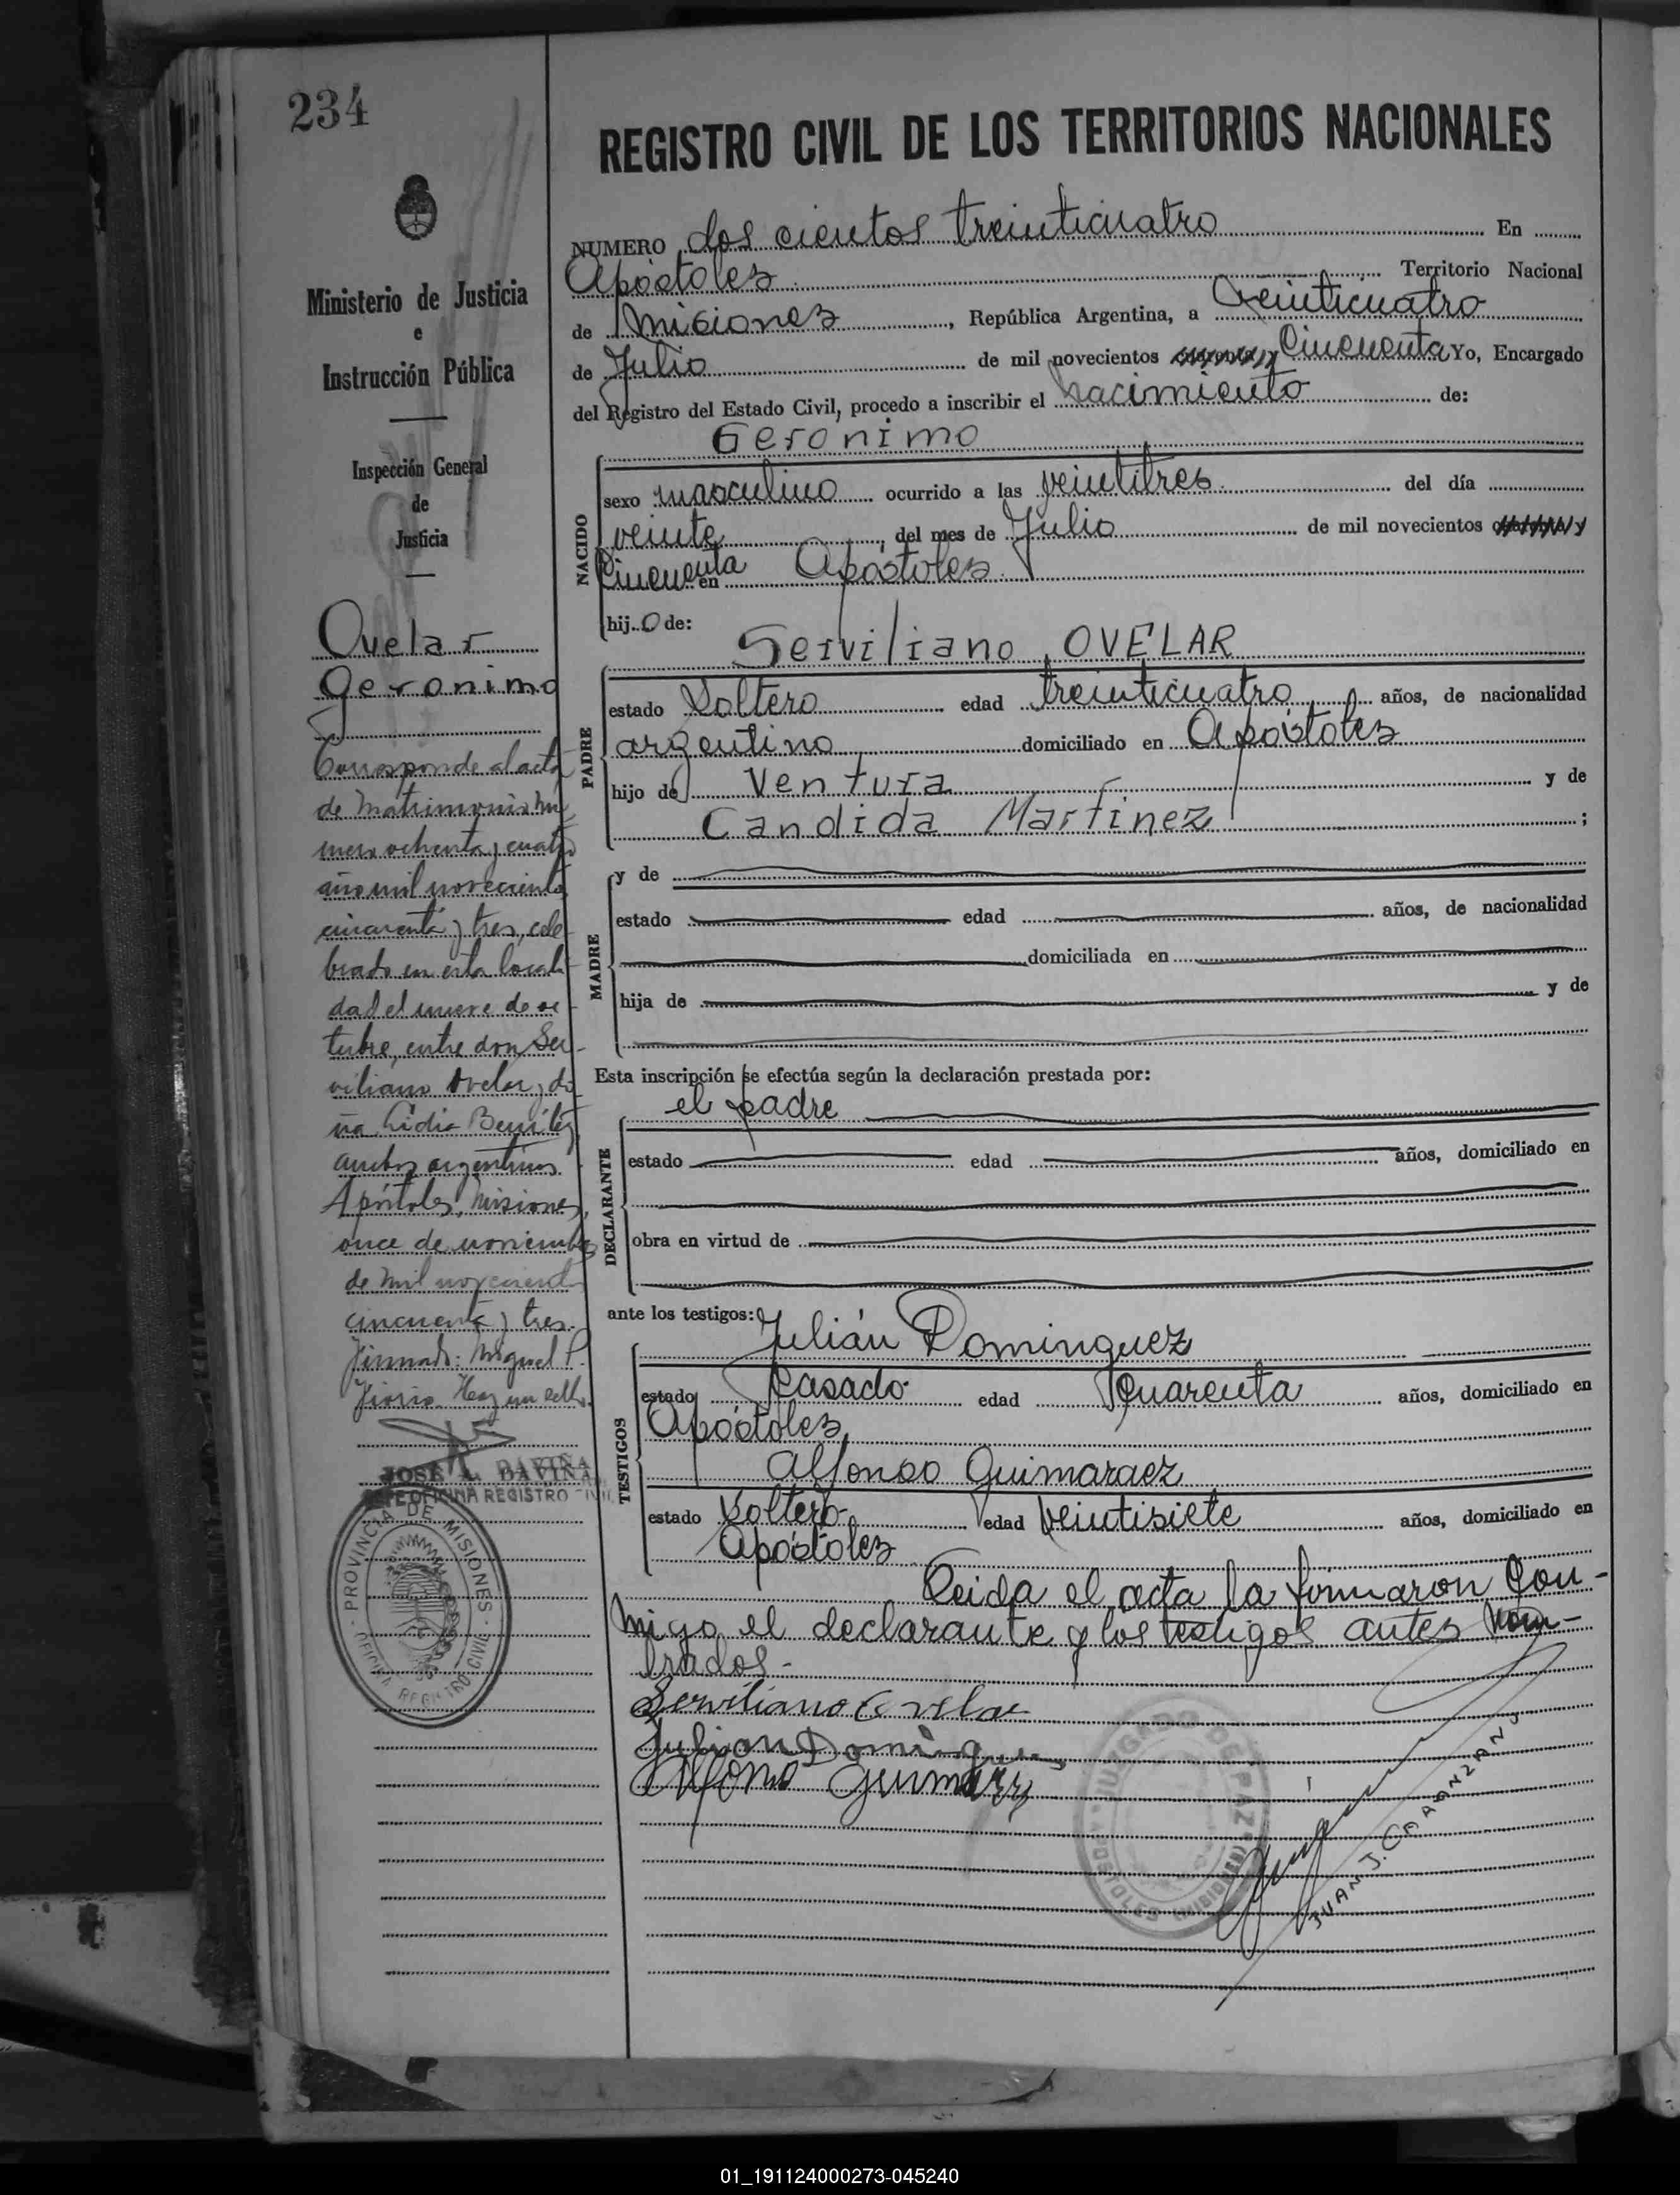 234
Ministerio de Justicia
e
Instrucción Pública
Inspección General
de
Justicia
Ovelar
Geronimo
Corresponde al acta
de matrimonio nu
mero ochenta y cuatro
año mil novecientos
cincuenta y tres, cele
brado en esta locali
dad el nueve de oc
tubre, entre don Ser
viliano Ovelar y do
ña Lidia Benítez
ambos argentinos.
Apóstoles, Misiones,
once de noviembre
de mil novecientos
cincuenta y tres.
Firmado: Miguel P.
Hay un sello.
JOSE L. DAVIÑA
JEFE OFICINA REGISTRO CIVIL
PROVINCIA DE MISIONES
OFICINA REGISTRO CIVIL
REGISTRO CIVIL DE LOS TERRITORIOS NACIONALES
NUMERO dos cientos treinticuatro En
Apóstoles Territorio Nacional
de Misiones, República Argentina, a veinticuatro
de Julio de mil novecientos cincuenta Yo, Encargado
del Registro del Estado Civil, procedo a inscribir el nacimiento de:
Geronimo
NACIDO
sexo masculino ocurrido a las veintitres del día
veinte del mes de Julio de mil novecientos y
cincuenta en Apóstoles
hijo de:
Serviliano OVELAR
PADRE
estado Soltero edad treinticuatro años, de nacionalidad
argentino domiciliado en Apóstoles
hijo de Ventura y de
Candida Martinez;
MADRE
y de
estado edad años, de nacionalidad
domiciliada en
hija de y de
Esta inscripción se efectúa según la declaración prestada por:
el padre
DECLARANTE
estado edad años, domiciliado en
obra en virtud de
ante los testigos: Julián Dominguez
TESTIGOS
estado Casado edad Cuarenta años, domiciliado en
Apóstoles,
Alfonso Guimaraez
estado Soltero edad veintisiete años, domiciliado en
Apóstoles
Leida el acta la firmaron Con-
migo el declarante y los testigos antes nom-
brados.-
Serviliano Ovelar
Julian Dominguez
Alfonso
JUZGADO DE PAZ
APOSTOLES (MISIONES)
JUAN J. CAANZANO
01_191124000273-045240